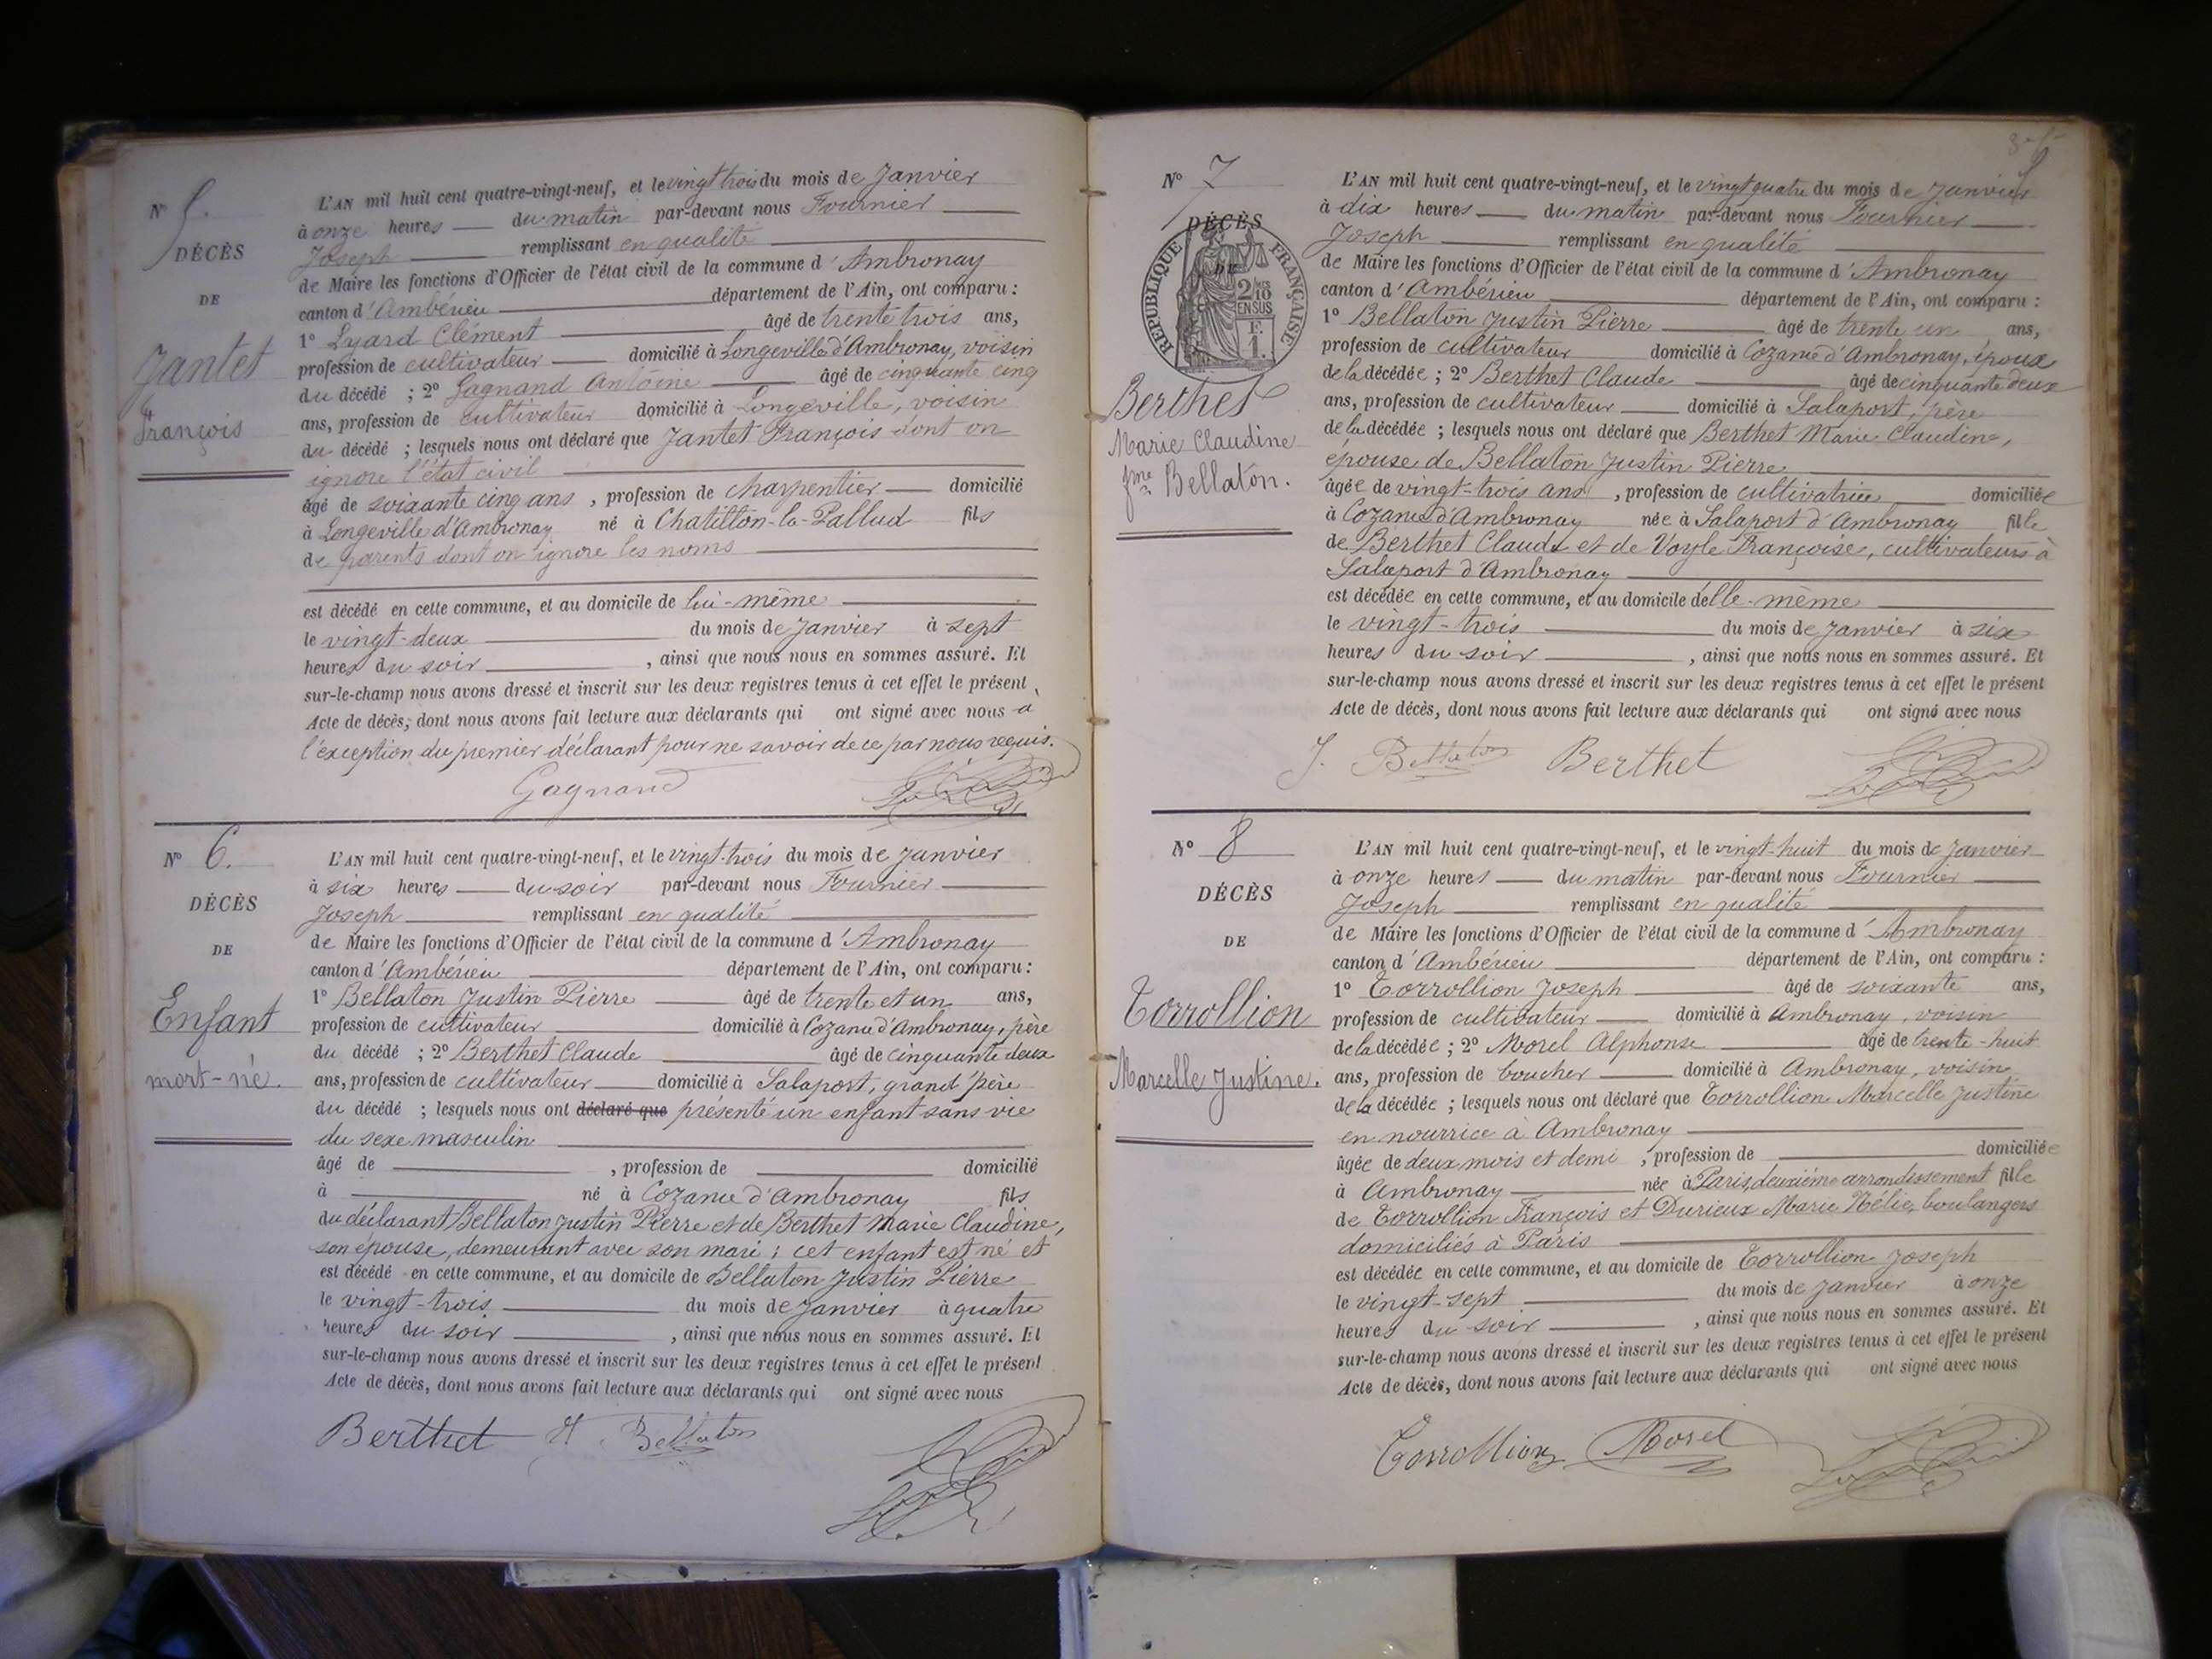 N° 5.
DÉCÈS
DE
Jantet
François
L'AN mil huit cent quatre-vingt-neuf, et le vingt trois du mois de Janvier
à onze heures du matin par-devant nous Fournier
Joseph remplissant en qualité
de Maire les fonctions d'Officier de l'état civil de la commune d'Ambronay
canton d'Ambérieu département de l'Ain, ont comparu :
1° Lyard Clément âgé de trente trois ans,
profession de cultivateur domicilié à Longeville d'Ambronay, voisin
du décédé ; 2° Gagnand Antoine âgé de cinquante cinq
ans, profession de cultivateur domicilié à Longeville, voisin
du décédé ; lesquels nous ont déclaré que Jantet François dont on
ignore l'état civil
âgé de soixante cinq ans , profession de charpentier domicilié
à Longeville d'Ambronay né à Chatillon-la-Pallud fils
de parents dont on ignore les noms
est décédé en cette commune, et au domicile de lui-même
le vingt-deux du mois de Janvier à sept
heures du soir , ainsi que nous nous en sommes assuré. Et
sur-le-champ nous avons dressé et inscrit sur les deux registres tenus à cet effet le présent
Acte de décès, dont nous avons fait lecture aux déclarants qui ont signé avec nous à
l'exception du premier déclarant pour ne savoir de ce par nous requis.
Gagnand
N° 6.
DÉCÈS
DE
Enfant
mort-né.
L'AN mil huit cent quatre-vingt-neuf, et le vingt-trois du mois de Janvier
à six heures du soir par-devant nous Fournier
Joseph remplissant en qualité
de Maire les fonctions d'Officier de l'état civil de la commune d'Ambronay
canton d'Ambérieu département de l'Ain, ont comparu :
1° Bellaton Justin Pierre âgé de trente et un ans,
profession de cultivateur domicilié à Cozance d'Ambronay, père
du décédé ; 2° Berthet Claude âgé de cinquante deux
ans, profession de cultivateur domicilié à Salaport, grand'père
du décédé ; lesquels nous ont déclaré que présenté un enfant sans vie
du sexe masculin
âgé de , profession de domicilié
à né à Cozance d'Ambronay fils
du déclarant Bellaton Justin Pierre et de Berthet Marie Claudine,
son épouse, demeurant avec son mari ; cet enfant est né et
est décédé en cette commune, et au domicile de Bellaton Justin Pierre
le vingt-trois du mois de Janvier à quatre
heures du soir , ainsi que nous nous en sommes assuré. Et
sur-le-champ nous avons dressé et inscrit sur les deux registres tenus à cet effet le présent
Acte de décès, dont nous avons fait lecture aux déclarants qui ont signé avec nous
Berthet Bellaton
N° 7
DÉCÈS
DE
RÉPUBLIQUE FRANÇAISE
2/10 EN SUS
1 F.
Berthet
Marie Claudine
fme Bellaton.
L'AN mil huit cent quatre-vingt-neuf, et le vingt quatre du mois de Janvier
à dix heures du matin par-devant nous Fournier
Joseph remplissant en qualité
de Maire les fonctions d'Officier de l'état civil de la commune d'Ambronay
canton d'Ambérieu département de l'Ain, ont comparu :
1° Bellaton Justin Pierre âgé de trente un ans,
profession de cultivateur domicilié à Cozance d'Ambronay, époux
de la décédée ; 2° Berthet Claude âgé de cinquante deux
ans, profession de cultivateur domicilié à Salaport, père
de la décédée ; lesquels nous ont déclaré que Berthet Marie Claudine,
épouse de Bellaton Justin Pierre
âgée de vingt-trois ans , profession de cultivatrice domiciliée
à Cozance d'Ambronay née à Salaport d'Ambronay fille
de Berthet Claude et de Voyle Françoise, cultivateurs à
Salaport d'Ambronay
est décédée en cette commune, et au domicile d'elle-même
le vingt-trois du mois de Janvier à six
heures du soir , ainsi que nous nous en sommes assuré. Et
sur-le-champ nous avons dressé et inscrit sur les deux registres tenus à cet effet le présent
Acte de décès, dont nous avons fait lecture aux déclarants qui ont signé avec nous
J. Bellaton Berthet
N° 8
DÉCÈS
DE
Corrollion
Marcelle Justine.
L'AN mil huit cent quatre-vingt-neuf, et le vingt-huit du mois de Janvier
à onze heures du matin par-devant nous Fournier
Joseph remplissant en qualité
de Maire les fonctions d'Officier de l'état civil de la commune d'Ambronay
canton d'Ambérieu département de l'Ain, ont comparu :
1° Corrollion Joseph âgé de soixante ans,
profession de cultivateur domicilié à Ambronay, voisin
de la décédée ; 2° Morel Alphonse âgé de trente-huit
ans, profession de boucher domicilié à Ambronay, voisin
de la décédée ; lesquels nous ont déclaré que Corrollion Marcelle Justine
en nourrice à Ambronay
âgée de deux mois et demi , profession de domiciliée
à Ambronay née à Paris, deuxième arrondissement fille
de Corrollion François et Durieux Marie Nélie, boulangers
domiciliés à Paris
est décédée en cette commune, et au domicile de Corrollion Joseph
le vingt-sept du mois de Janvier à onze
heures du soir , ainsi que nous nous en sommes assuré. Et
sur-le-champ nous avons dressé et inscrit sur les deux registres tenus à cet effet le présent
Acte de décès, dont nous avons fait lecture aux déclarants qui ont signé avec nous
Corrollion Morel